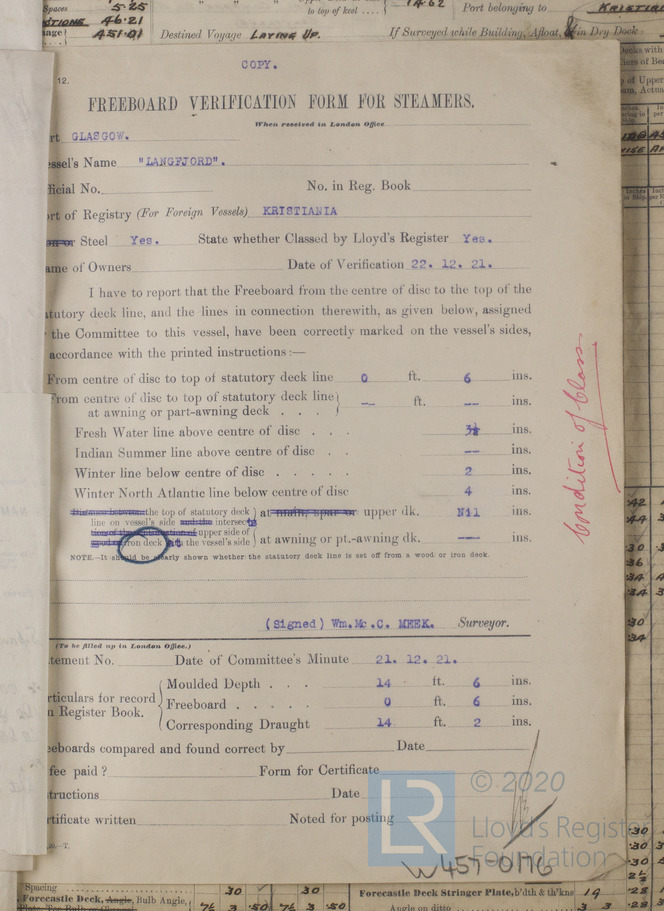 Spaces 5·25
46·21 to top of keel .... 14·62 Port belonging to KRISTIA
451·01 Destined Voyage LAYING UP. If Surveyed while Building, Afloat, & in Dry Dock.
COPY.
12.
FREEBOARD VERIFICATION FORM FOR STEAMERS.
When received in London Office
rt GLASGOW.
essel's Name "LANGFJORD".
ficial No. No. in Reg. Book
ort of Registry (For Foreign Vessels) KRISTIANIA
Steel Yes. State whether Classed by Lloyd's Register Yes.
ame of Owners Date of Verification 22. 12. 21.
I have to report that the Freeboard from the centre of disc to the top of the
tatutory deck line, and the lines in connection therewith, as given below, assigned
the Committee to this vessel, have been correctly marked on the vessel's sides,
accordance with the printed instructions:—
From centre of disc to top of statutory deck line 0 ft. 6 ins.
From centre of disc to top of statutory deck line
at awning or part-awning deck . . . -- ft. -- ins.
Fresh Water line above centre of disc . . . 3½ ins.
Indian Summer line above centre of disc . -- ins.
Winter line below centre of disc . . . . . 2 ins.
Winter North Atlantic line below centre of disc 4 ins.
Distance between the top of statutory deck
line on vessel's side and the intersec
at main, spar or upper dk. Nil ins.
upper side of
iron deck the vessel's side
at awning or pt.-awning dk. --- ins.
NOTE.—It should be clearly shown whether the statutory deck line is set off from a wood or iron deck.
(Signed) Wm. Mc. C. MEEK. Surveyor.
(To be filled up in London Office.)
tement No. Date of Committee's Minute 21. 12. 21.
rticulars for record
n Register Book.
Moulded Depth . . . 14 ft. 6 ins.
Freeboard . . . . . 0 ft. 6 ins.
Corresponding Draught 14 ft. 2 ins.
eeboards compared and found correct by Date
fee paid ? Form for Certificate
tructions Date
rtificate written Noted for posting
Condition of Class
© 2020
LR
Lloyd's Register
Foundation
W457-0176
Spacing 30 30
Forecastle Deck, Angle, Bulb Angle, Forecastle Deck Stringer Plate, b'dth & th'kns 19
7½ 3 ·50 7½ 3 ·50 Angle on ditto 3 3